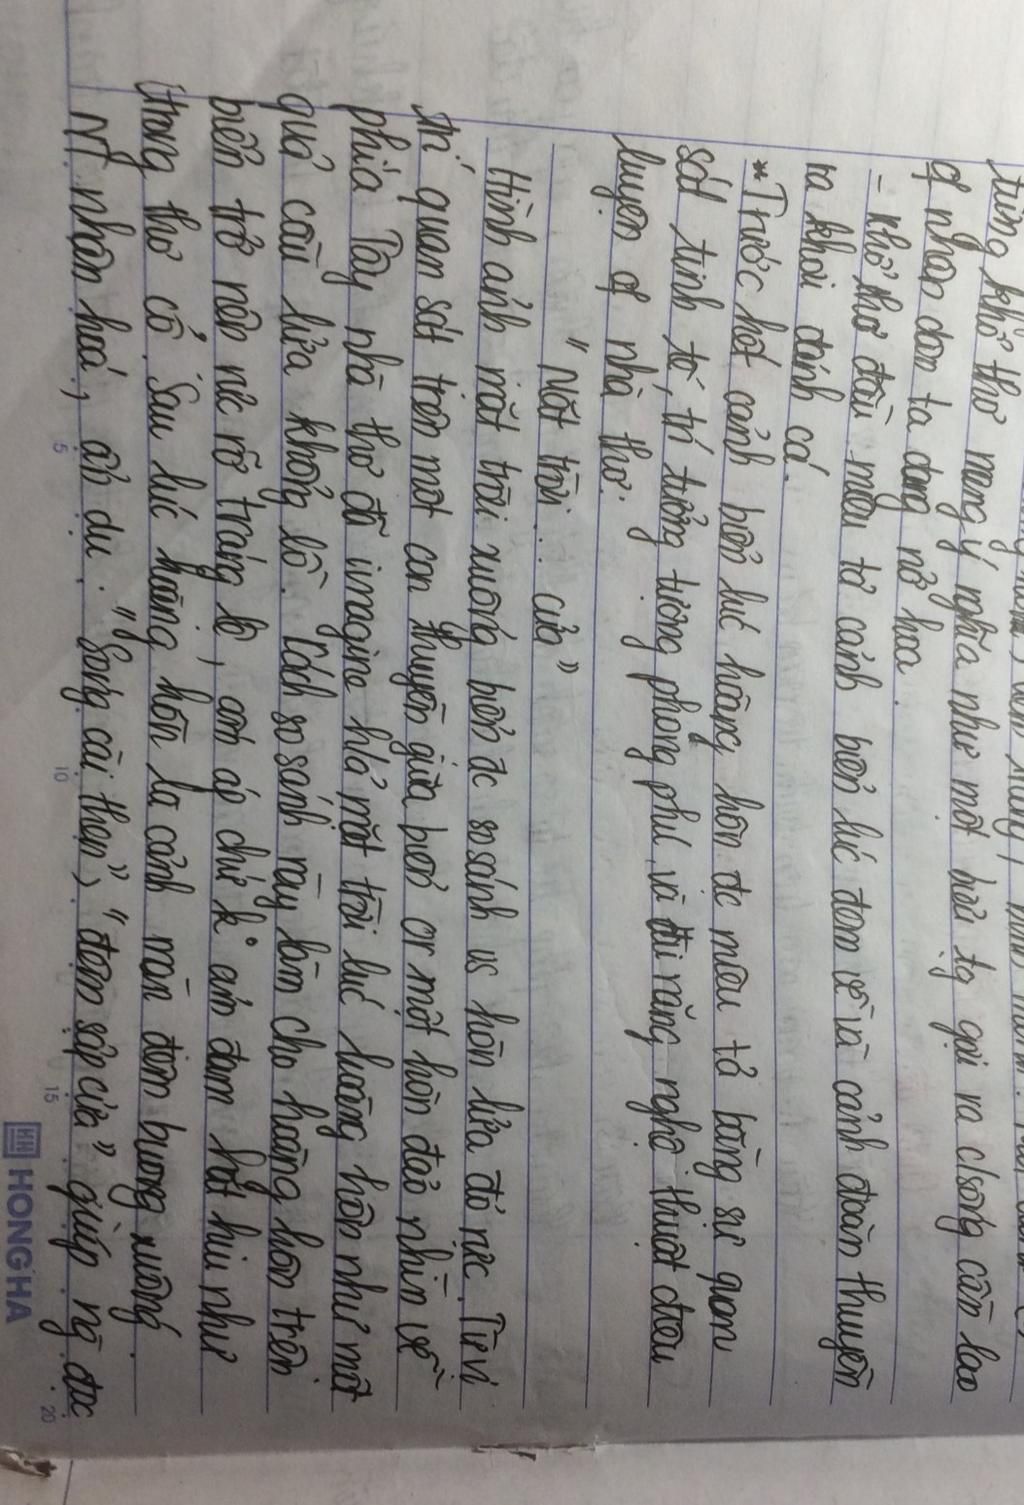 từng khổ thơ mang ý nghĩa như một bức tạ gợi ra c/sống cần lao
of nhân dân ta đang nở hoa.
- Khổ thơ đầu miêu tả cảnh biển lúc đêm về và cảnh đoàn thuyền
ra khơi đánh cá.
*Trước hết cảnh biển lúc hoàng hôn đc miêu tả bằng sự quan
sát tinh tế, trí tưởng tượng phong phú và tài năng nghệ thuật điêu
luyện of nhà thơ.
"Mặt trời ... cửa"
Hình ảnh mặt trời xuống biển đc so sánh vs hòn lửa đỏ rực. Từ vị
trí quan sát trên một con thuyền giữa biển or một hòn đảo nhìn về
phía Tây nhà thơ đã imagine h/ả mặt trời lúc hoàng hôn như một
quả cầu lửa khổng lồ. Cách so sánh này làm cho hoàng hôn trên
biển trở nên rực rỡ tráng lệ, ấm áp chứ k° ảm đạm hắt hiu như
trong thơ cổ. Sau lúc hoàng hôn là cảnh màn đêm buông xuống.
NT nhân hoá, ẩn dụ: "Sóng cài then", "đêm sập cửa" giúp ng đọc
5
10
15
20
HONG HA